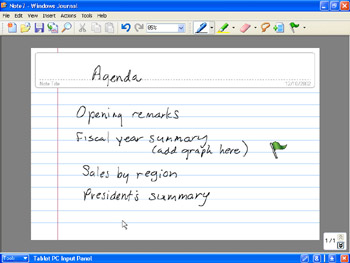 Note1 - Windows Journal
File Edit View Insert Actions Tools Help
85%
Agenda
Note Title
Opening remarks
Fiscal year summary
(add graph here)
Sales by region
President's summary
1/1
Tools Tablet PC Input Panel